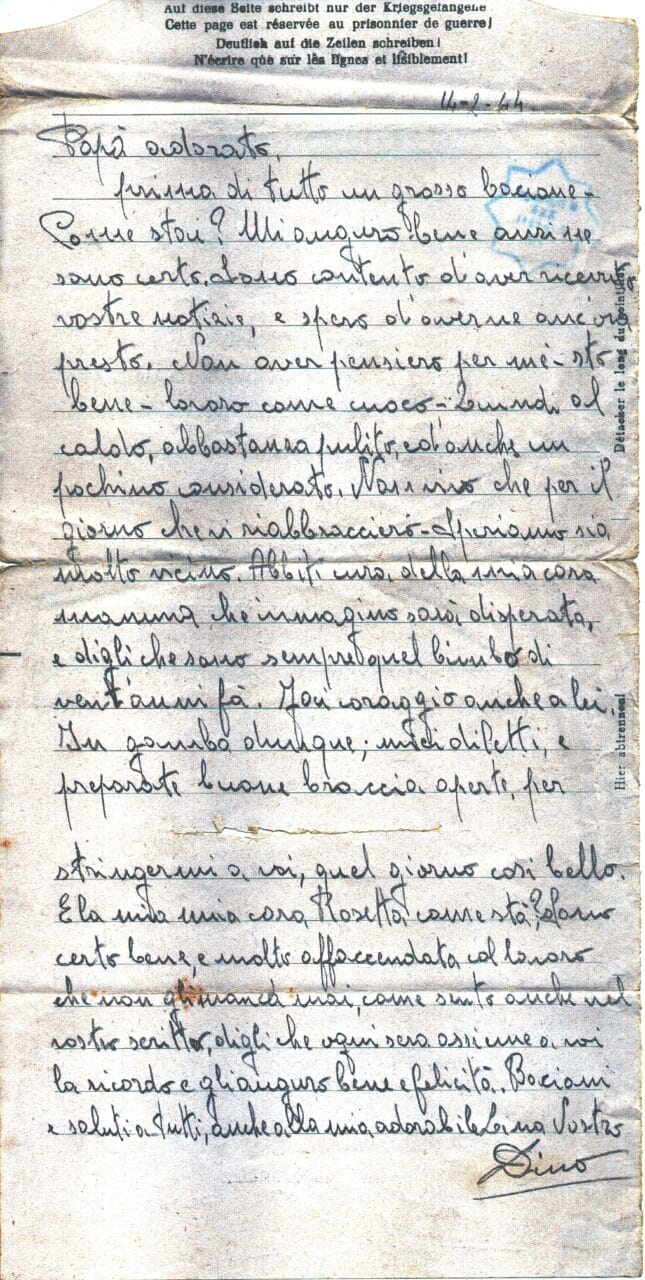 Auf diese Seite schreibt nur der Kriegsgefangene!
Cette page est réservée au prisonnier de guerre!
Deutlich auf die Zeilen schreiben!
N'écrire que sur les lignes et lisiblement!
14-2-44.
Papà adorato,
prima di tutto un grosso bacione-
Come stai? Mi auguro bene anzi ne
sono certo. Sono contento d'aver ricevuto
vostre notizie, e spero d'averne ancora
presto. Non aver pensiero per me- sto
bene- lavoro come cuoco- Quindi al
caldo, abbastanza pulito, ed anche un
pochino considerato. Non vivo che per il
giorno che vi riabbraccierò- Speriamo sia
molto vicino. Abbiti cura della mia cara
mamma, che immagino sarà disperata,
e digli che sono sempre quel bimbo di
vent'anni fà. Fai coraggio anche a lei.
In gamba dunque, miei diletti, e
preparate buone braccia aperte, per
stringermi a voi, quel giorno così bello.
E la mia mia cara Rosetta come stà? Sono
certo bene, e molto affaccendata col lavoro
che non gli manca mai, come sento anche nel
vostro scritto, digli che ogni sera assieme a voi
la ricordo e gli auguro bene e felicità. Bacioni
e saluti a tutti, anche alla mia adorabile Lina Vostro
Dino
Détacher le long du pointillé!
Hier abtrennen!